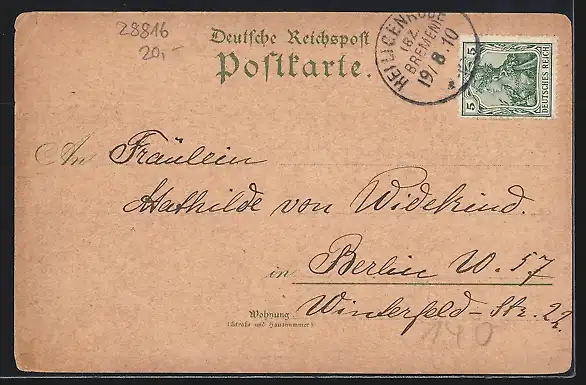 28816
20,-
Deutsche Reichspost
Postkarte.
(BZ. BREMEN)
19/8.10
5 5
DEUTSCHES REICH
An Fräulein
Mathilde von Widekind.
in Berlin W. 57
Wohnung
(Straße und Hausnummer)
Winterfeld-Str. 22
140